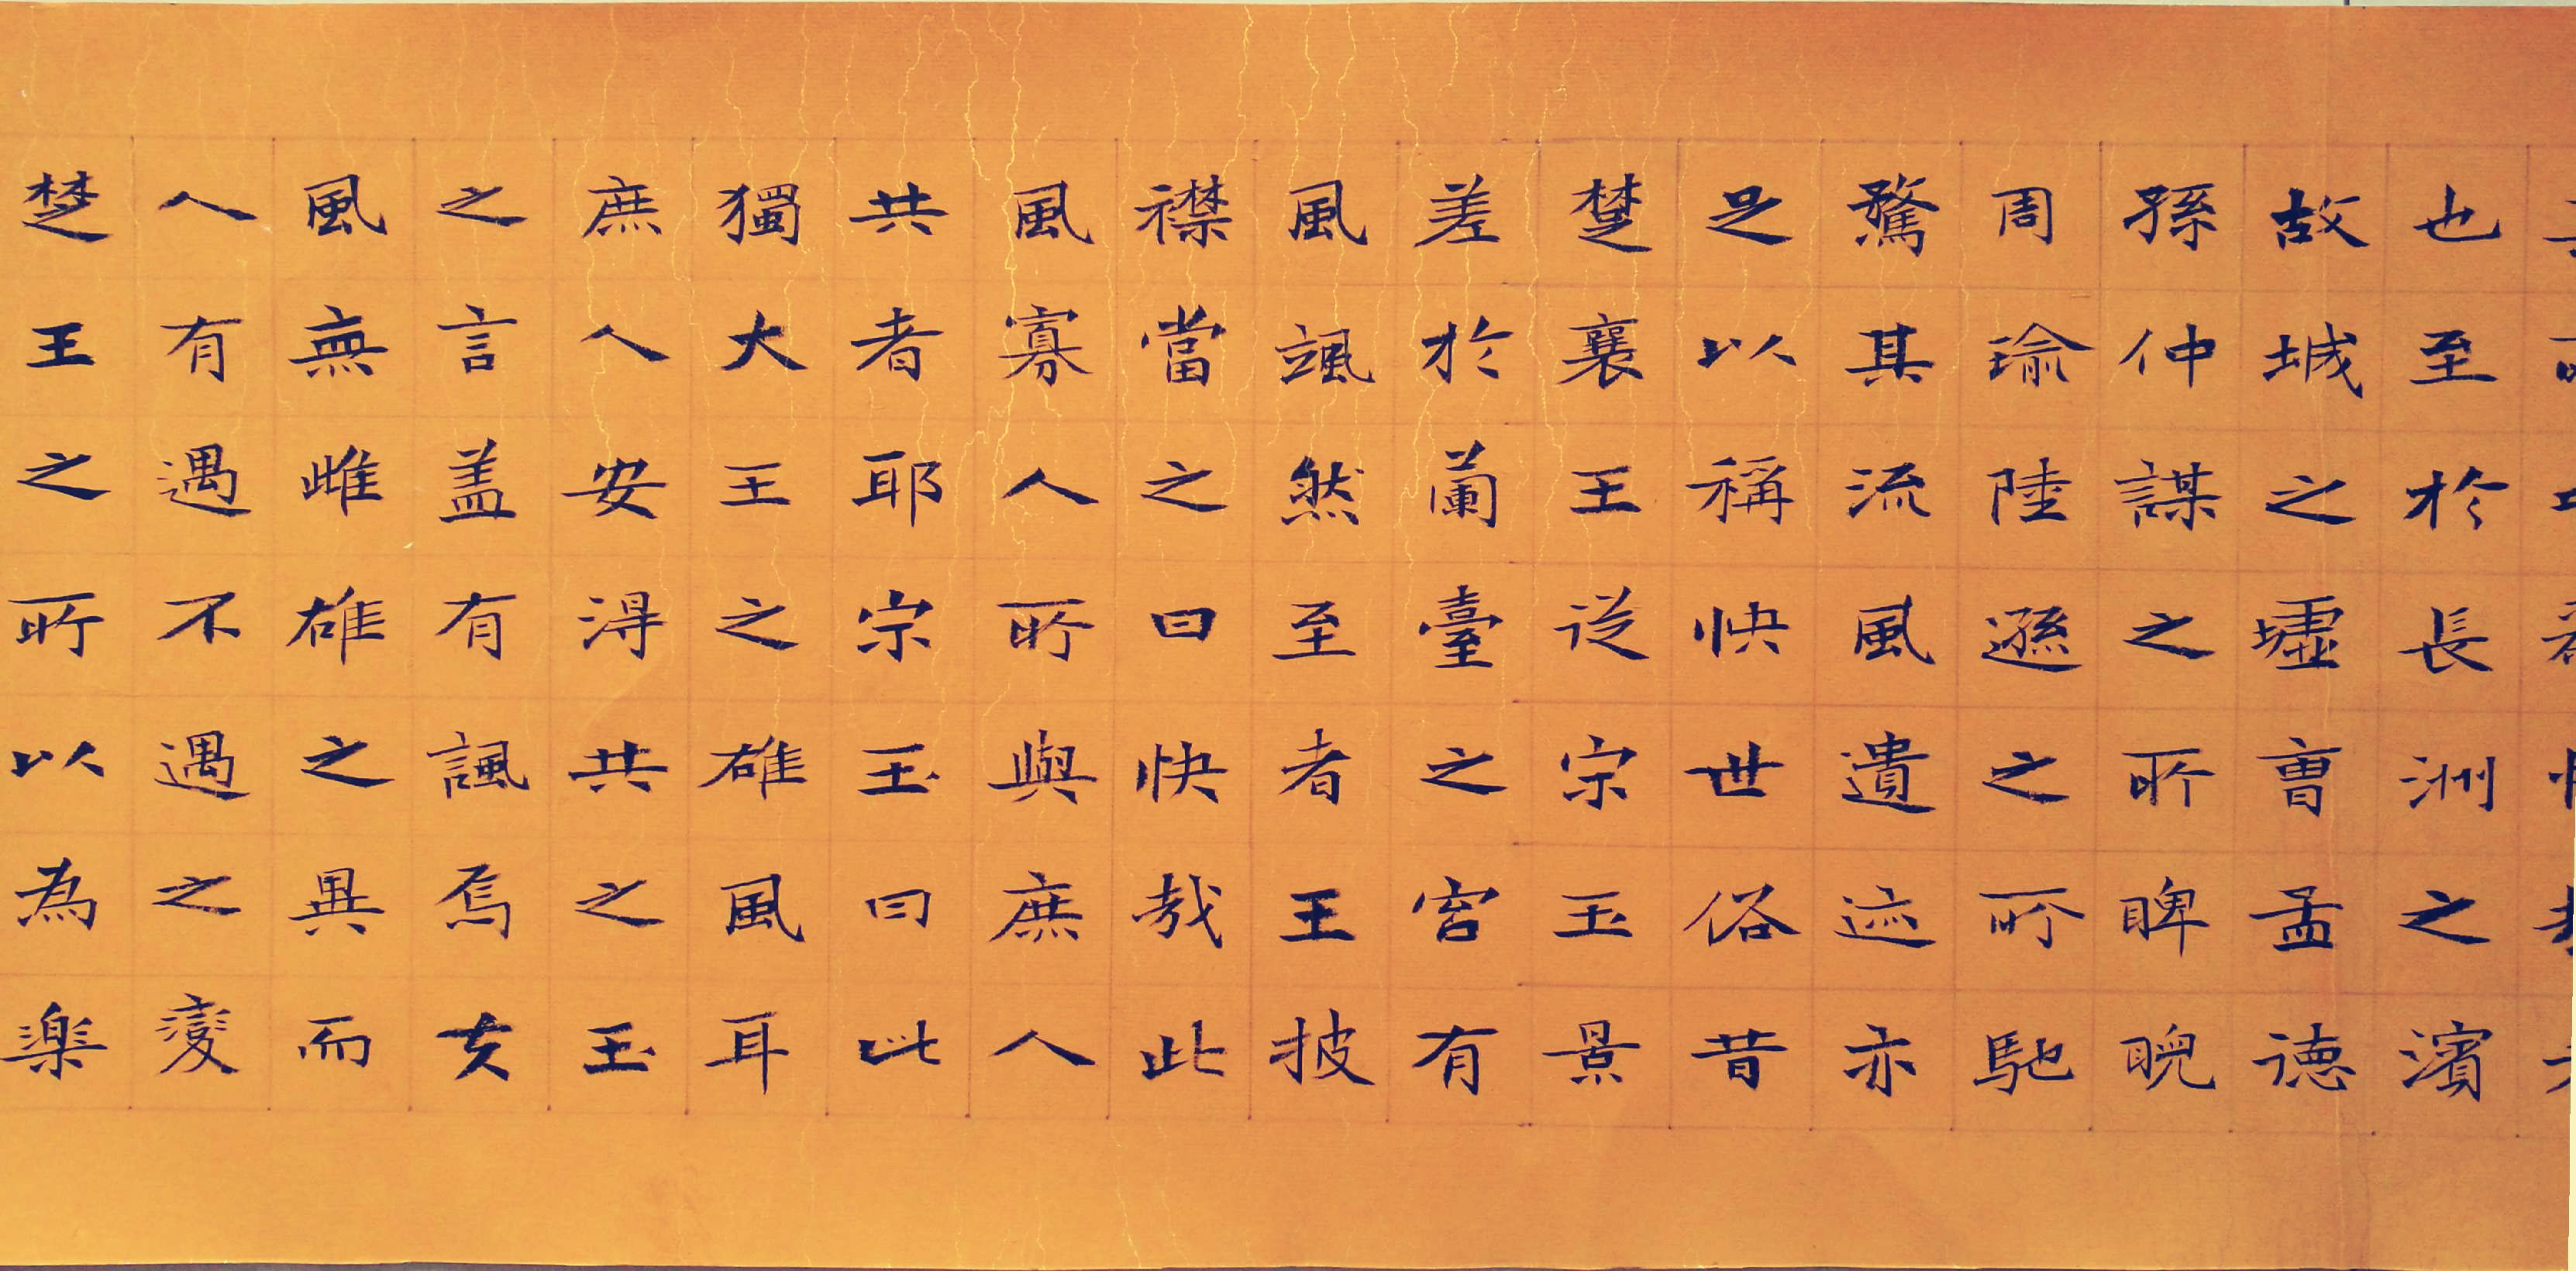 也至於長洲之濱
故城之墟曹孟德
孫仲謀之所睥睨
周瑜陸遜之所馳
騖其流風遺迹亦
足以稱快世俗昔
楚襄王從宗玉景
差於蘭臺之宮有
風颯然至者王披
襟當之曰快哉此
風寡人所與庶人
共者耶宗玉曰此
獨大王之雄風耳
庶人安得共之玉
之言盖有諷焉夫
風無雌雄之異而
人有遇不遇之變
楚王之所以為樂